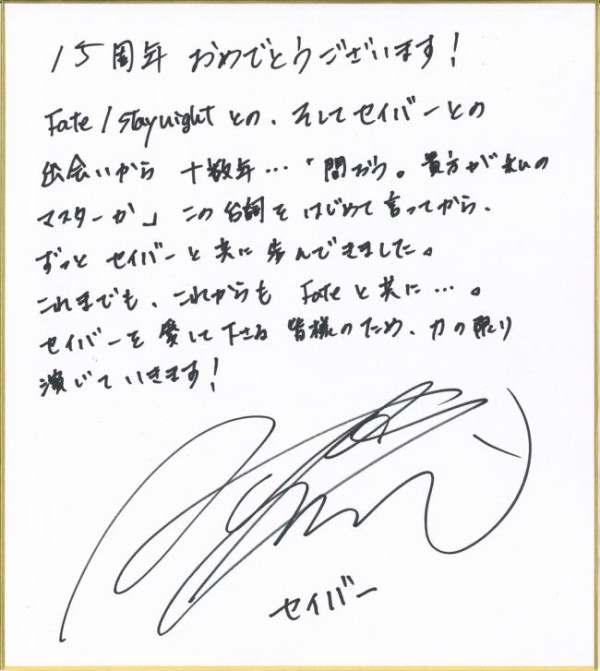 15周年 おめでとうございます!
Fate/staynight との、そしてセイバーとの
出会いから 十数年…「問おう。貴方が私の
マスターか」この台詞を はじめて言ってから、
ずっと セイバーと共に 歩んできました。
これまでも、これからも Fateと共に…。
セイバーを 愛して下さる 皆様のため、力の限り
演じていきます!
セイバー